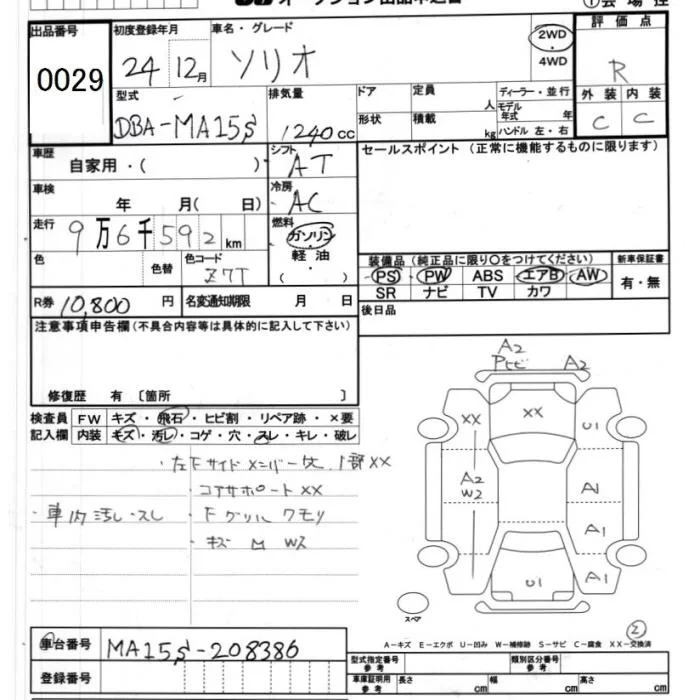 出品番号
0029
初度登録年月
24 12月
車名・グレード
ソリオ
2WD
4WD
評価点
R
外装 内装
C C
型式
DBA-MA15S
排気量
1240cc
ドア
形状
定員
人
積載
kg
ディーラー・並行
モデル年式 年
ハンドル 左・右
車歴
自家用・( )
シフト
AT
セールスポイント(正常に機能するものに限ります)
車検
年 月( 日)
冷房
AC
走行
9万6千592km
燃料
ガソリン
軽油
( )
色
色替
色コード
Z7T
装備品(純正品に限り○をつけてください)
PS PW ABS エアB AW
SR ナビ TV カワ
新車保証書
有・無
R券 10,800円
名変通知期限 月 日
後日品
注意事項申告欄(不具合内容等は具体的に記入して下さい)
修復歴 有〔箇所 〕
検査員記入欄
FW キズ・飛石・ヒビ割・リペア跡・×要
内装 キズ・汚レ・コゲ・穴・スレ・キレ・破レ
・左Fサイドメンバー 1部XX
・コアサポートXX
・車内汚レ・スレ
・Fグリルクモリ
・キズ
A2
Pヒビ
A2
XX
XX
U1
A2
W2
A1
A1
A1
U1
スペア
2
A-キズ E-エクボ U-凹み W-補修跡 S-サビ C-腐食 XX-交換済
車台番号
MA15S-208386
登録番号
型式指定番号
参考
類別区分番号
参考
車庫証明用
参考
長さ cm
幅 cm
高さ cm